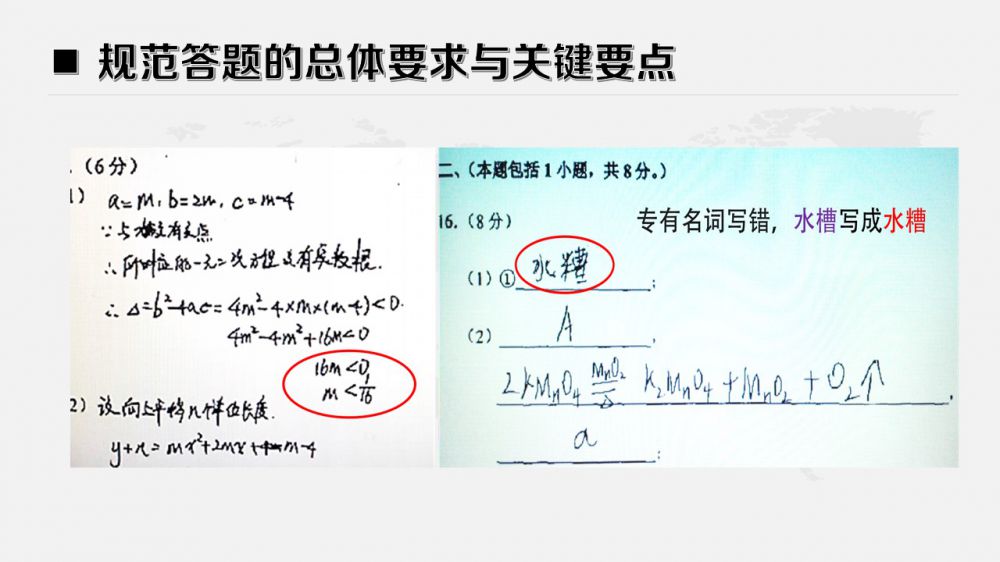 规范答题的总体要求与关键要点
.（6分）
1） a=m, b=2m, c=m-4
∵与x轴没有交点
∴所对应的一元二次方程没有实数根.
∴ Δ=b²-4ac=4m²-4×m×(m-4)<0.
4m²-4m²+16m<0
16m<0,
m<1/16
2）设向上平移n个单位长度.
y+n=mx²+2mx+m-4
二、（本题包括1小题，共8分。）
专有名词写错，水槽写成水糟
16.（8分）
（1）① 水糟 ；
（2） A ，
2KMnO4 MnO2 Δ K2MnO4+MnO2+O2↑ .
a ；